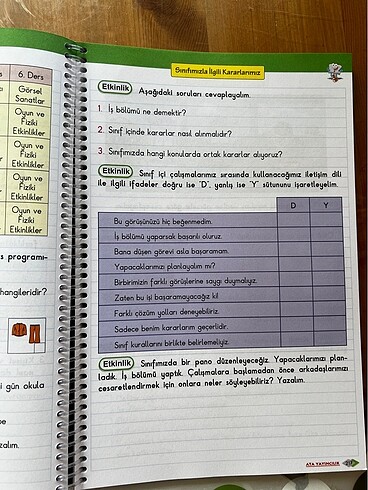 6. Ders
Görsel
Sanatlar
Oyun ve
Fiziki
Etkinlikler
Oyun ve
Fiziki
Etkinlikler
Oyun ve
Fiziki
Etkinlikler
Oyun ve
Fiziki
Etkinlikler
programı-
hangileridir?
gün okula
Sınıfımızla İlgili Kararlarımız
Etkinlik Aşağıdaki soruları cevaplayalım.
1. İş bölümü ne demektir?
2. Sınıf içinde kararlar nasıl alınmalıdır?
3. Sınıfımızda hangi konularda ortak kararlar alıyoruz?
Etkinlik Sınıf içi çalışmalarımız sırasında kullanacağımız iletişim dili
ile ilgili ifadeler doğru ise "D", yanlış ise "Y" sütununu işaretleyelim.
D Y
Bu görüşünüzü hiç beğenmedim.
İş bölümü yaparsak başarılı oluruz.
Bana düşen görevi asla başaramam.
Yapacaklarımızı planlayalım mı?
Birbirimizin farklı görüşlerine saygı duymalıyız.
Zaten bu işi başaramayacağız ki!
Farklı çözüm yolları deneyebiliriz.
Sadece benim kararlarım geçerlidir.
Sınıf kurallarını birlikte belirlemeliyiz.
Etkinlik Sınıfımızda bir pano düzenleyeceğiz. Yapacaklarımızı plan-
ladık. İş bölümü yaptık. Çalışmalara başlamadan önce arkadaşlarımızı
cesaretlendirmek için onlara neler söyleyebiliriz? Yazalım.
ATA YAYINCILIK